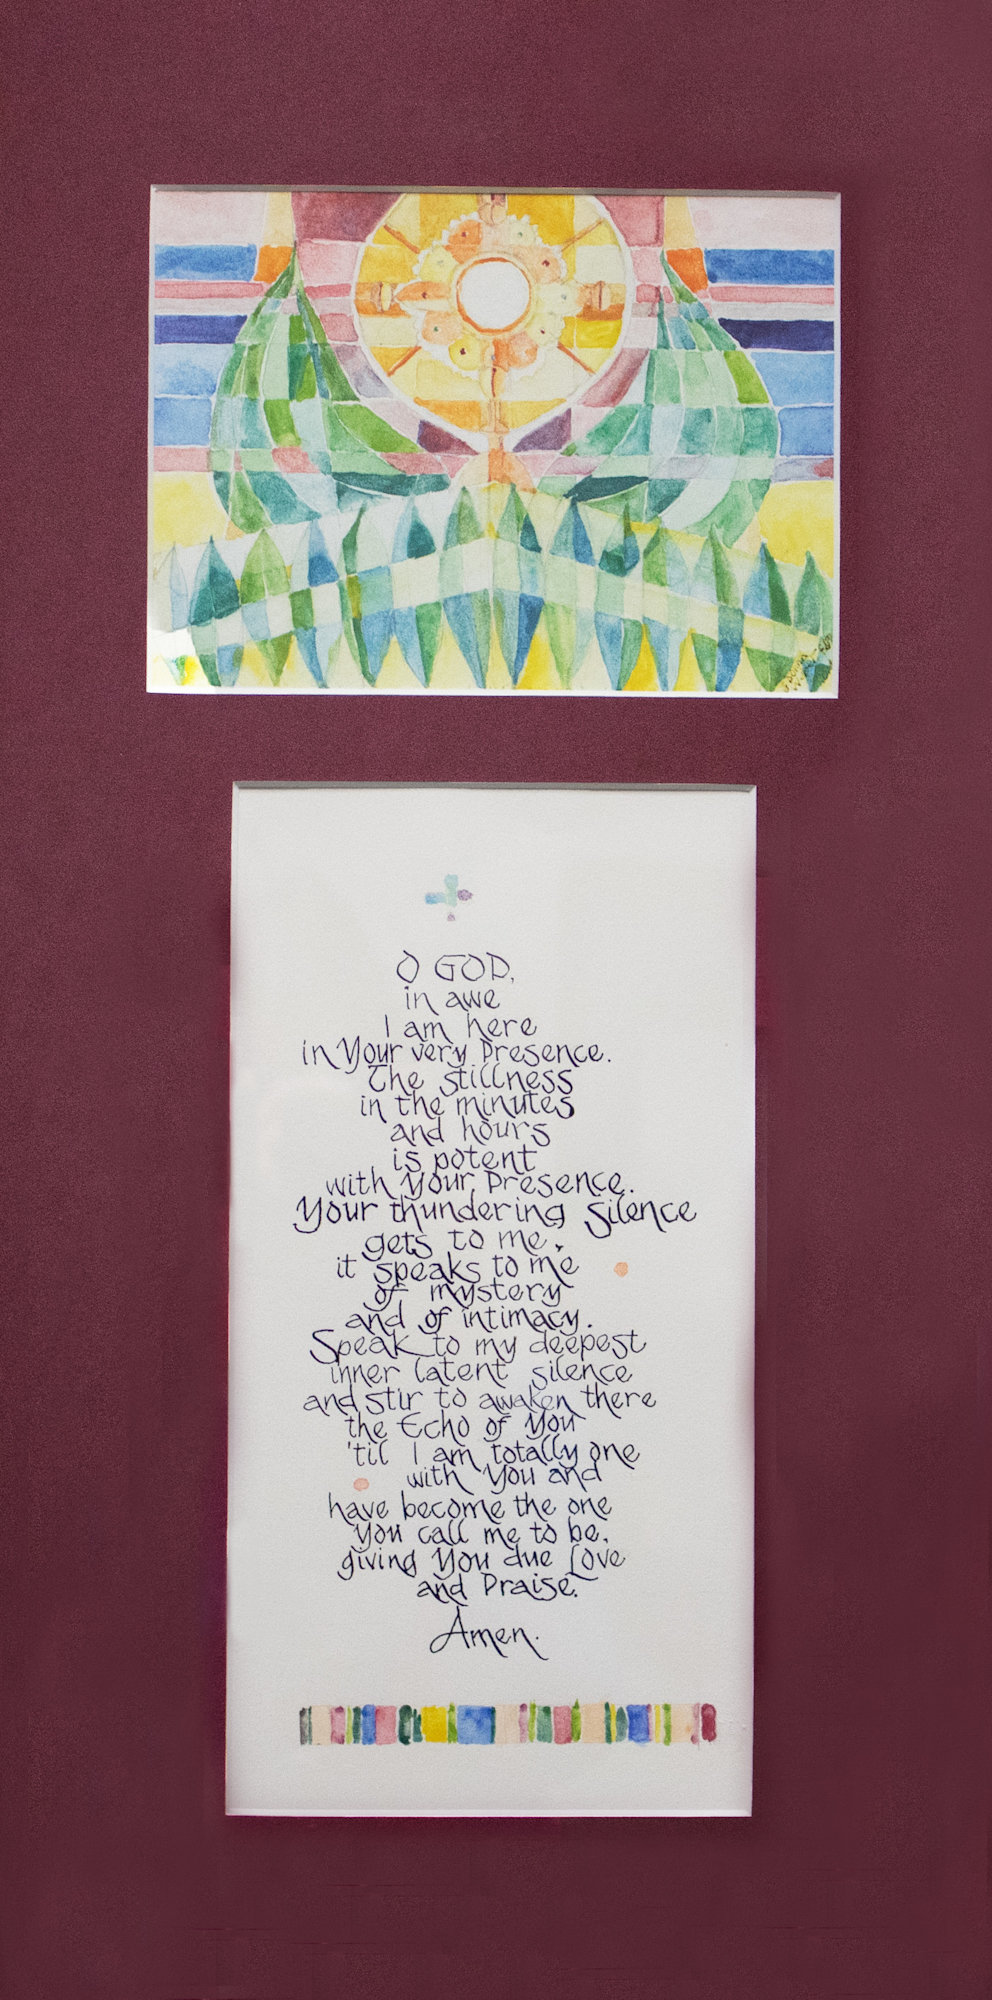 O GOD,
in awe
I am here
in Your very Presence.
The stillness
in the minutes
and hours
is potent
with Your Presence.
Your thundering Silence
gets to me,
it speaks to me
of mystery
and of intimacy.
Speak to my deepest
inner latent silence
and stir to awaken there
the Echo of You
'til I am totally one
with You and
have become the one
You call me to be,
giving You due Love
and Praise.
Amen.